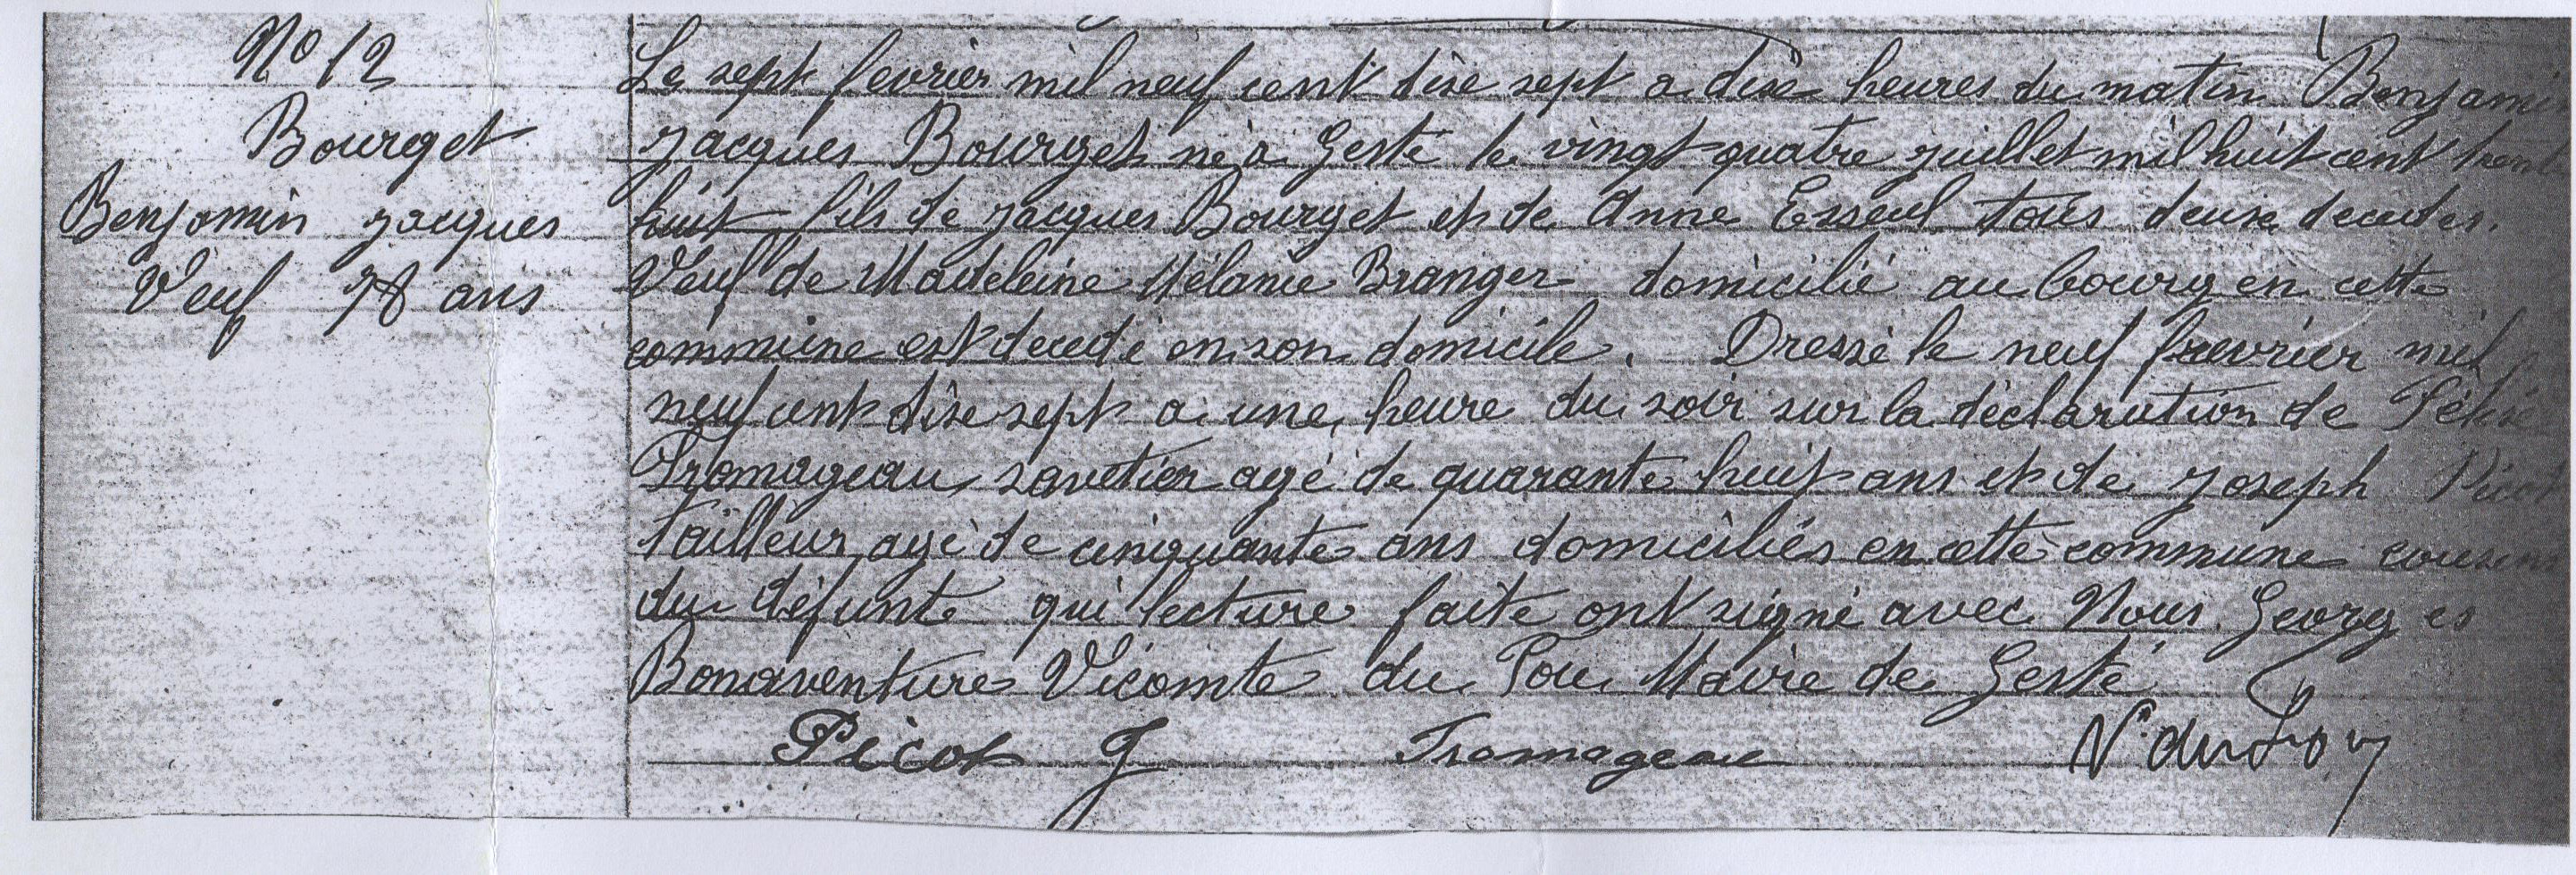 No 12
Bourget
Benjamin Jacques
Veuf 78 ans
Le sept fevrier mil neuf cent dixe sept a dixe heures du matin Benjamin
Jacques Bourget né à Gesté le vingt quatre juillet mil huit cent trente
huit fils de Jacques Bourget et de Anne Esseul tous deuxe decedes.
Veuf de Madeleine Mélanie Branger domicilié au bourg en cette
commune est decedé en son domicile. Dressé le neuf fevrier mil
neuf cent dixe sept a une heure du soir sur la déclaration de
Fromageau savetier agé de quarante huit ans et de Joseph Picot
tailleur agé de cinquante ans domiciliés en cette commune cousins
du défunte qui lecture faite ont signé avec Nous Georges
Bonaventure Vicomte du Pou Maire de Gesté
Picot J Fromageau Vte du Pou